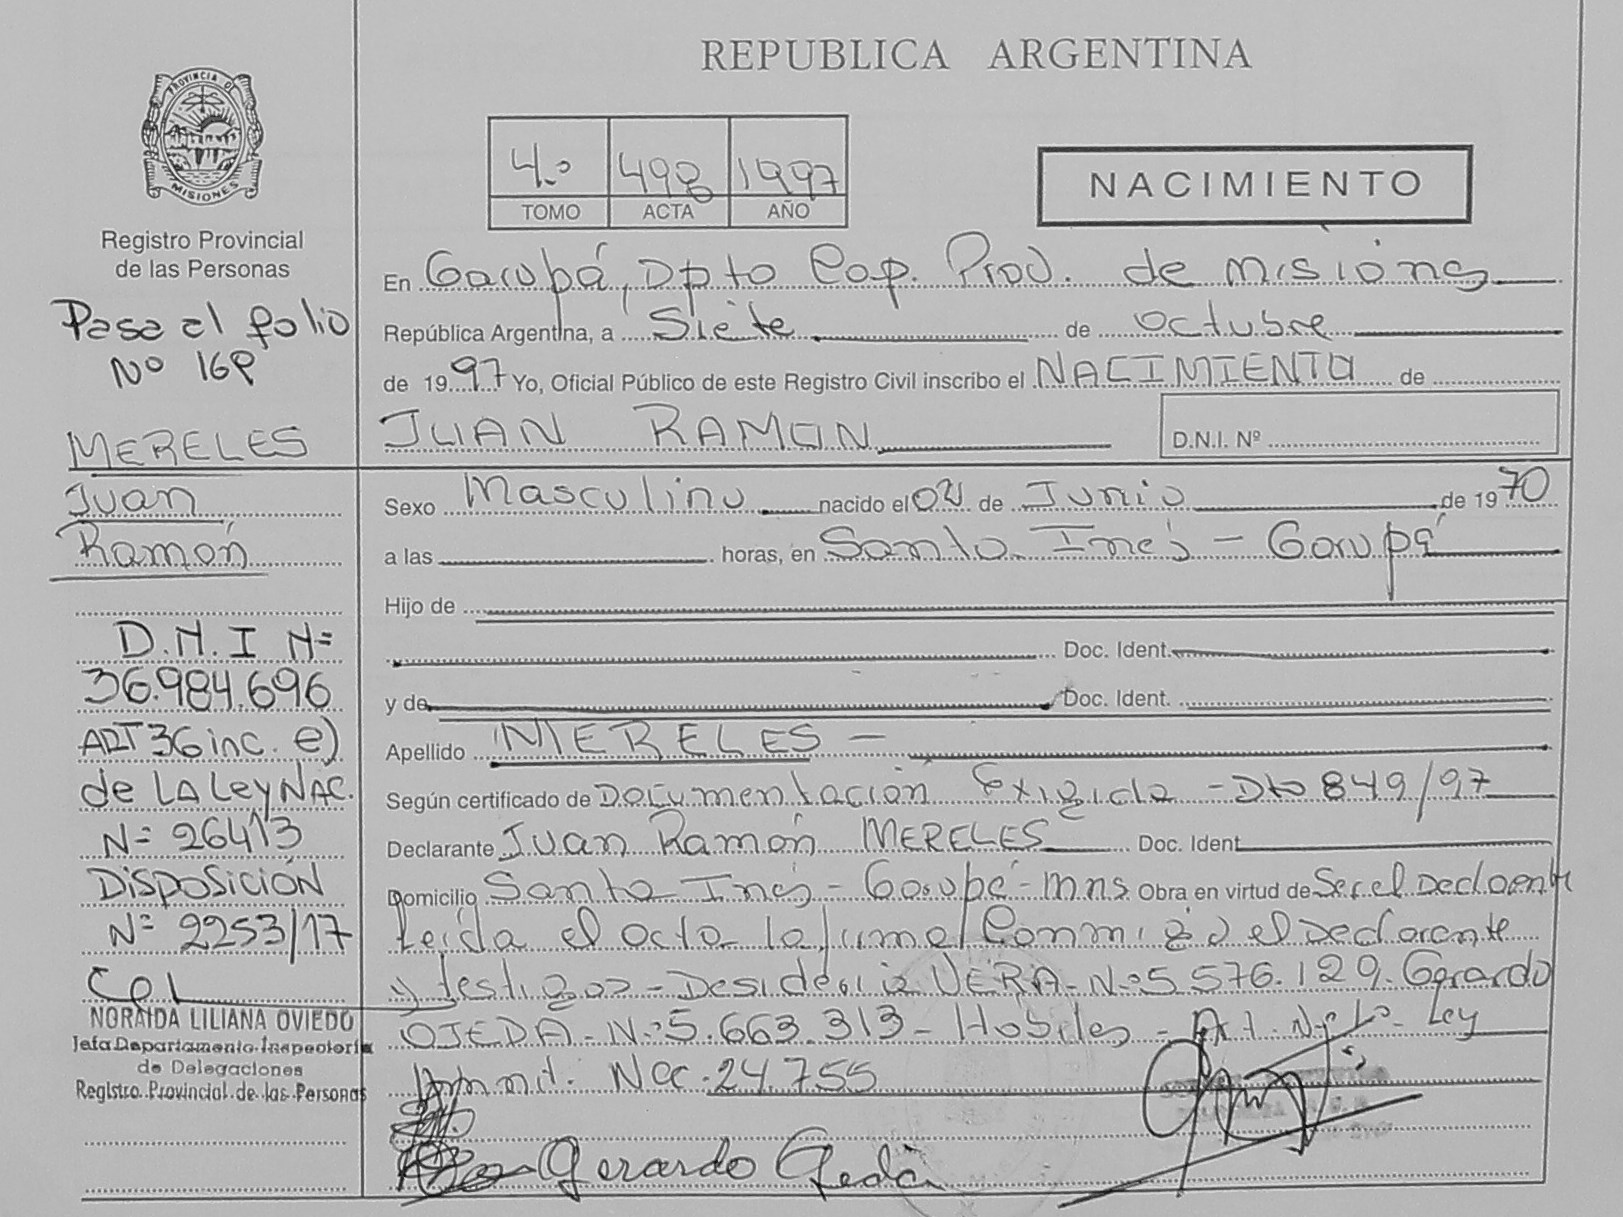 REPUBLICA ARGENTINA
PROVINCIA DE
MISIONES
Registro Provincial
de las Personas
Pasa al folio
Nº 168
MERELES
Juan
Ramón
D.N.I Nº
36.984.696
ART 36 inc. e)
de LA Ley NAC.
Nº 26413
DISPOSICIÓN
Nº 2253/17
NORAIDA LILIANA OVIEDO
Jefa Departamento Inspectoria
de Delegaciones
Registro Provincial de las Personas
4º 498 1997
TOMO ACTA AÑO
NACIMIENTO
En Garupá, Dpto Cap. Prov. de Misiones
República Argentina, a Siete de octubre
de 1997 Yo, Oficial Público de este Registro Civil inscribo el NACIMIENTO de
JUAN RAMON D.N.I. Nº
Sexo Masculino nacido el 02 de Junio de 1970
a las horas, en Santa Inés - Garupá
Hijo de
Doc. Ident.
y de Doc. Ident.
Apellido MERELES -
Según certificado de Documentación Exigida - Dto 849/97
Declarante Juan Ramón MERELES Doc. Ident
Domicilio Santa Inés - Garupá - Mns. Obra en virtud de Ser el Declarante
Leída el acta la firma Conmigo el Declarante
y testigos - Desiderio VERA - Nº 5.576.129 - Gerardo
OJEDA - Nº 5.663.313 - Hábiles - Art. Ley
Nac. 24.755
Gerardo Ojeda